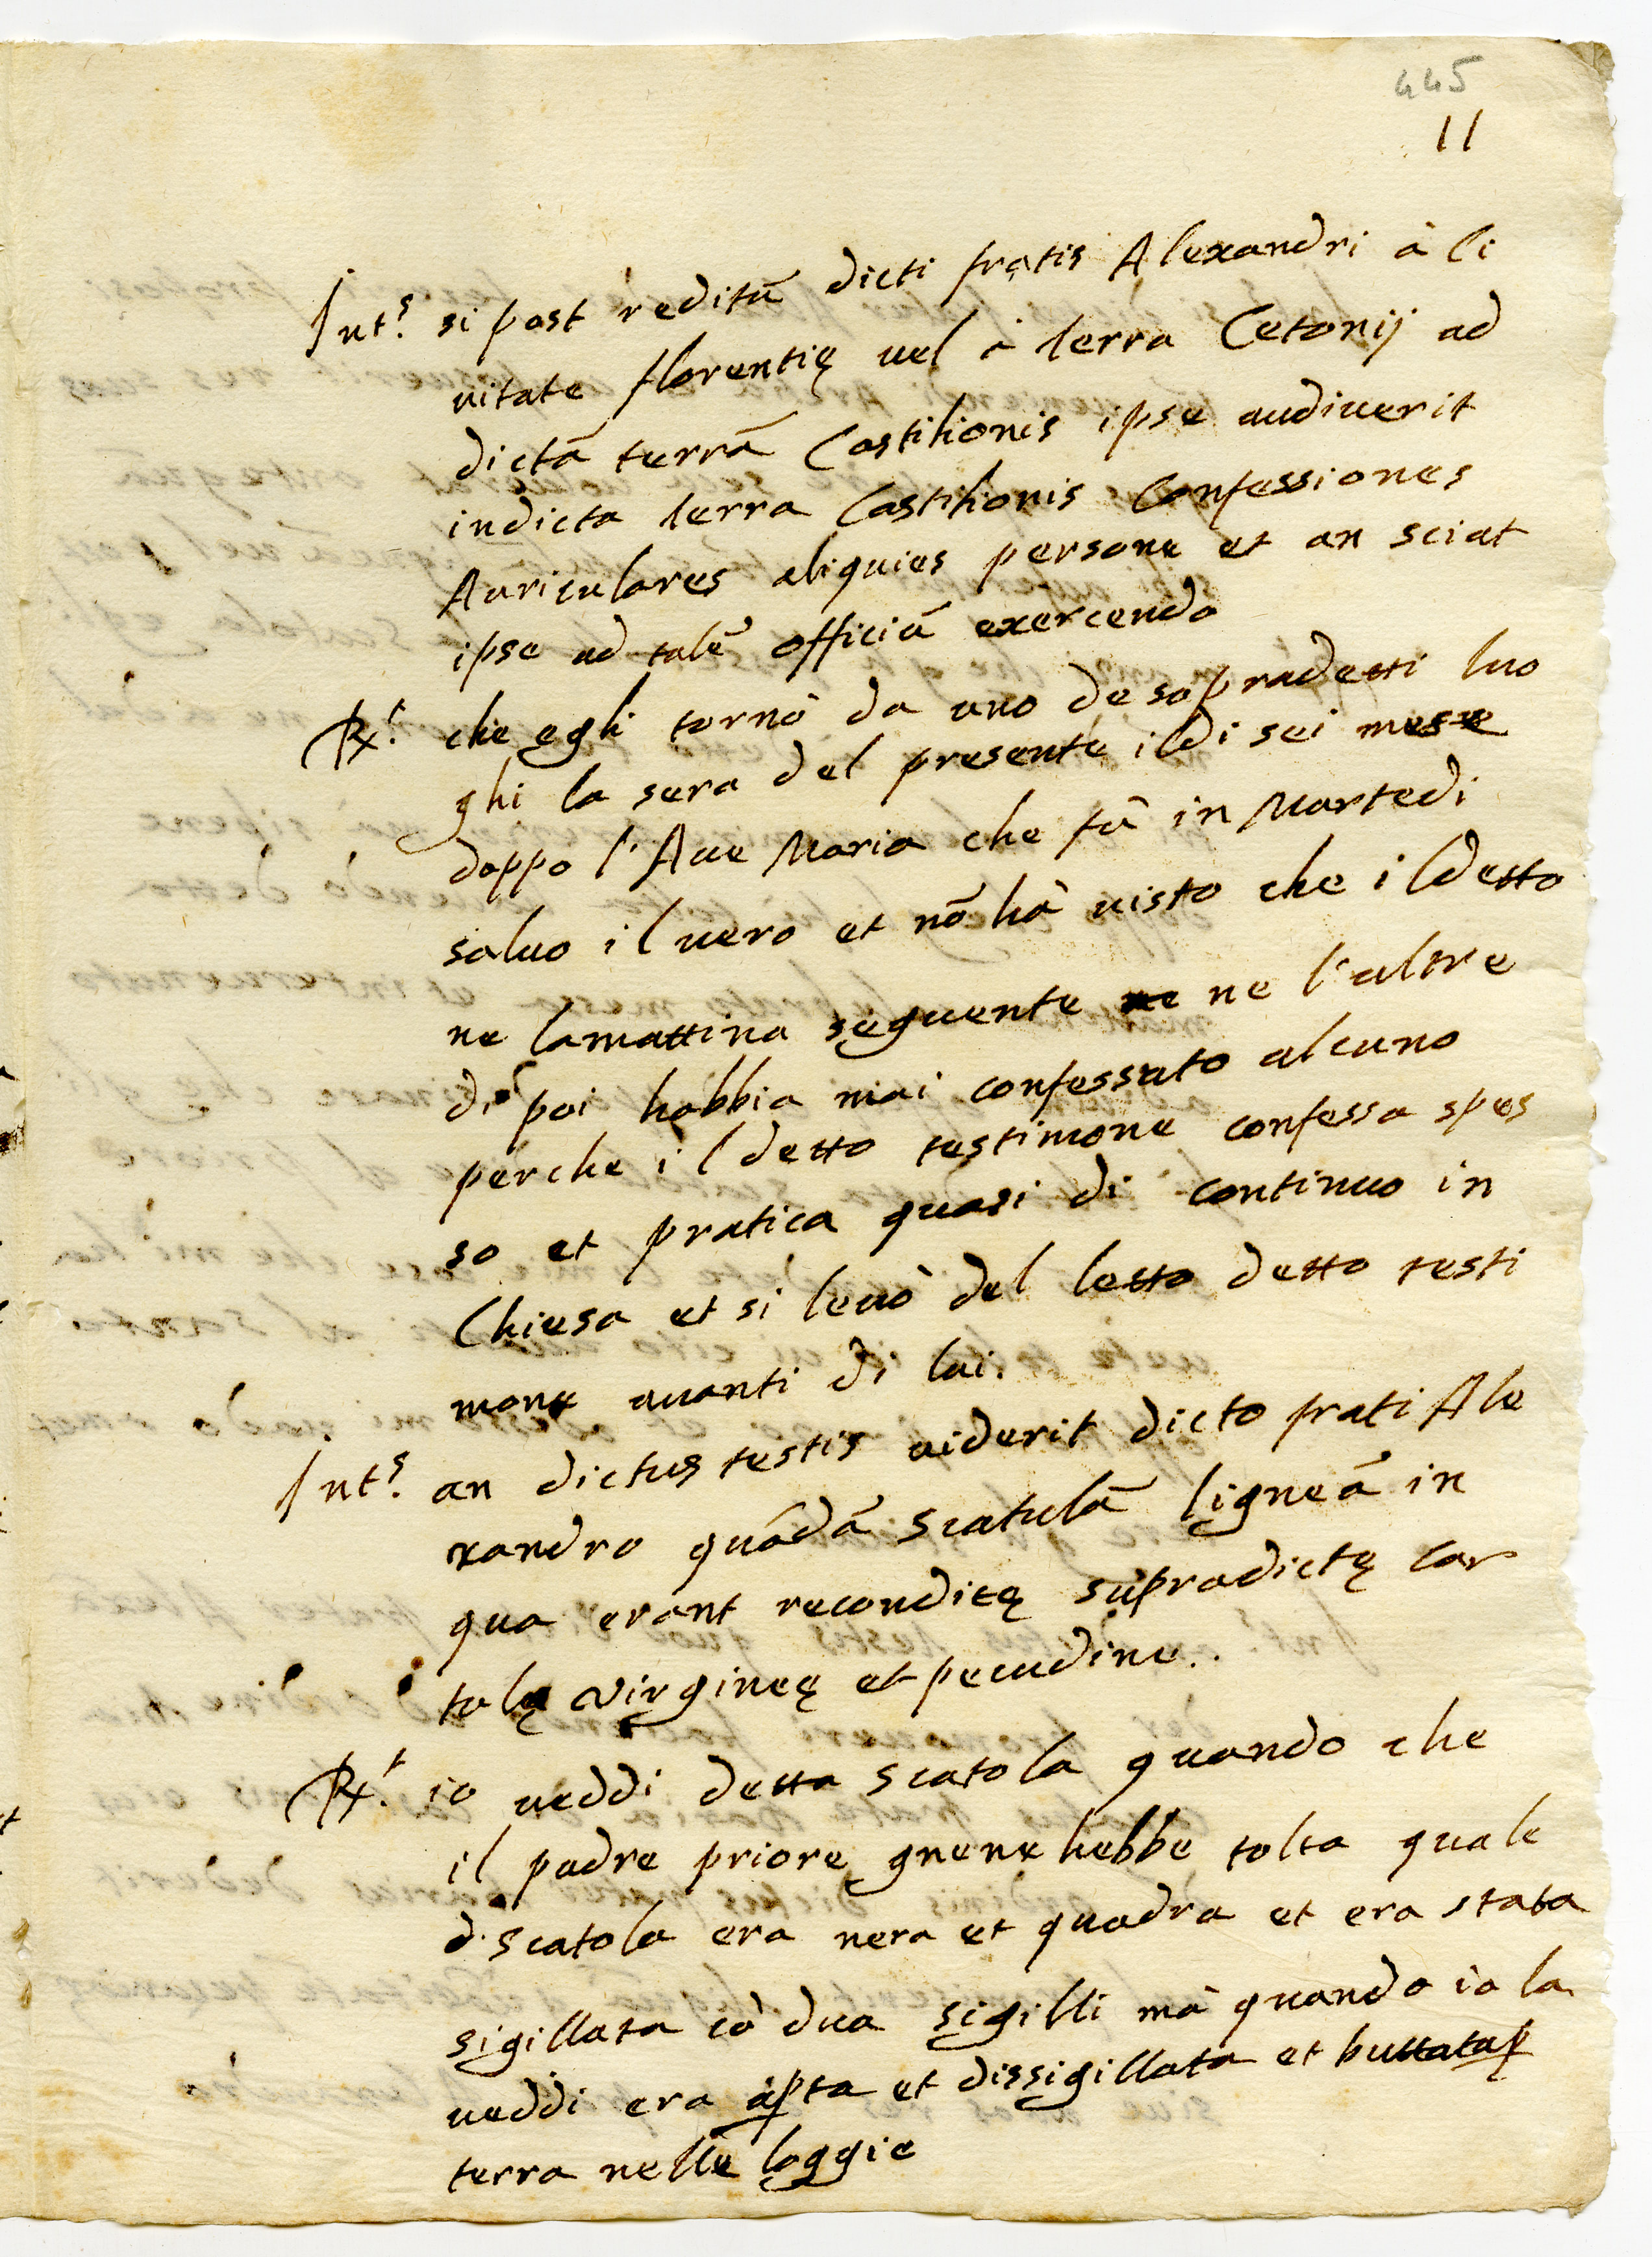 445
11
Int.s si post reditū dicti fratis Alexandri à Ci
uitate florentię uel à terra Cetonij ad
dictā terrā Castilionis ipse audiuerit
indicta terra Castilionis Confessiones
Auriculares aliquies persone et an sciat
ipse ad talē officiū exercendo
Rx.t che egli tornò da uno de sopradetti luo
ghi la sera del presente il di sei mese
doppo l'Aue Maria che fù in Martedi
saluo il uero et nō hà uisto che il detto
ne lamattina seguente ne ne l'altre
di poi habbia mai confessato alcuno
perche il detto testimone confessa spes
so et pratica quasi di continuo in
Chiesa et si leuò del letto detto testi
mone auanti di lui.
Int.s an dictus testis uiderit dicto frati Ale
xandro quādā scatulā ligneā in
qua erant reconditę supradictę car
tulę virgineę et pecudine..
Rx.t io ueddi detta scatola quando che
il padre priore gnene hebbe tolta quale
d. scatola era nera et quadra et era stata
sigillata cō dua sigilli mà quando io la
ueddi era apta et dissigillata et buttata p
terra nelle loggie